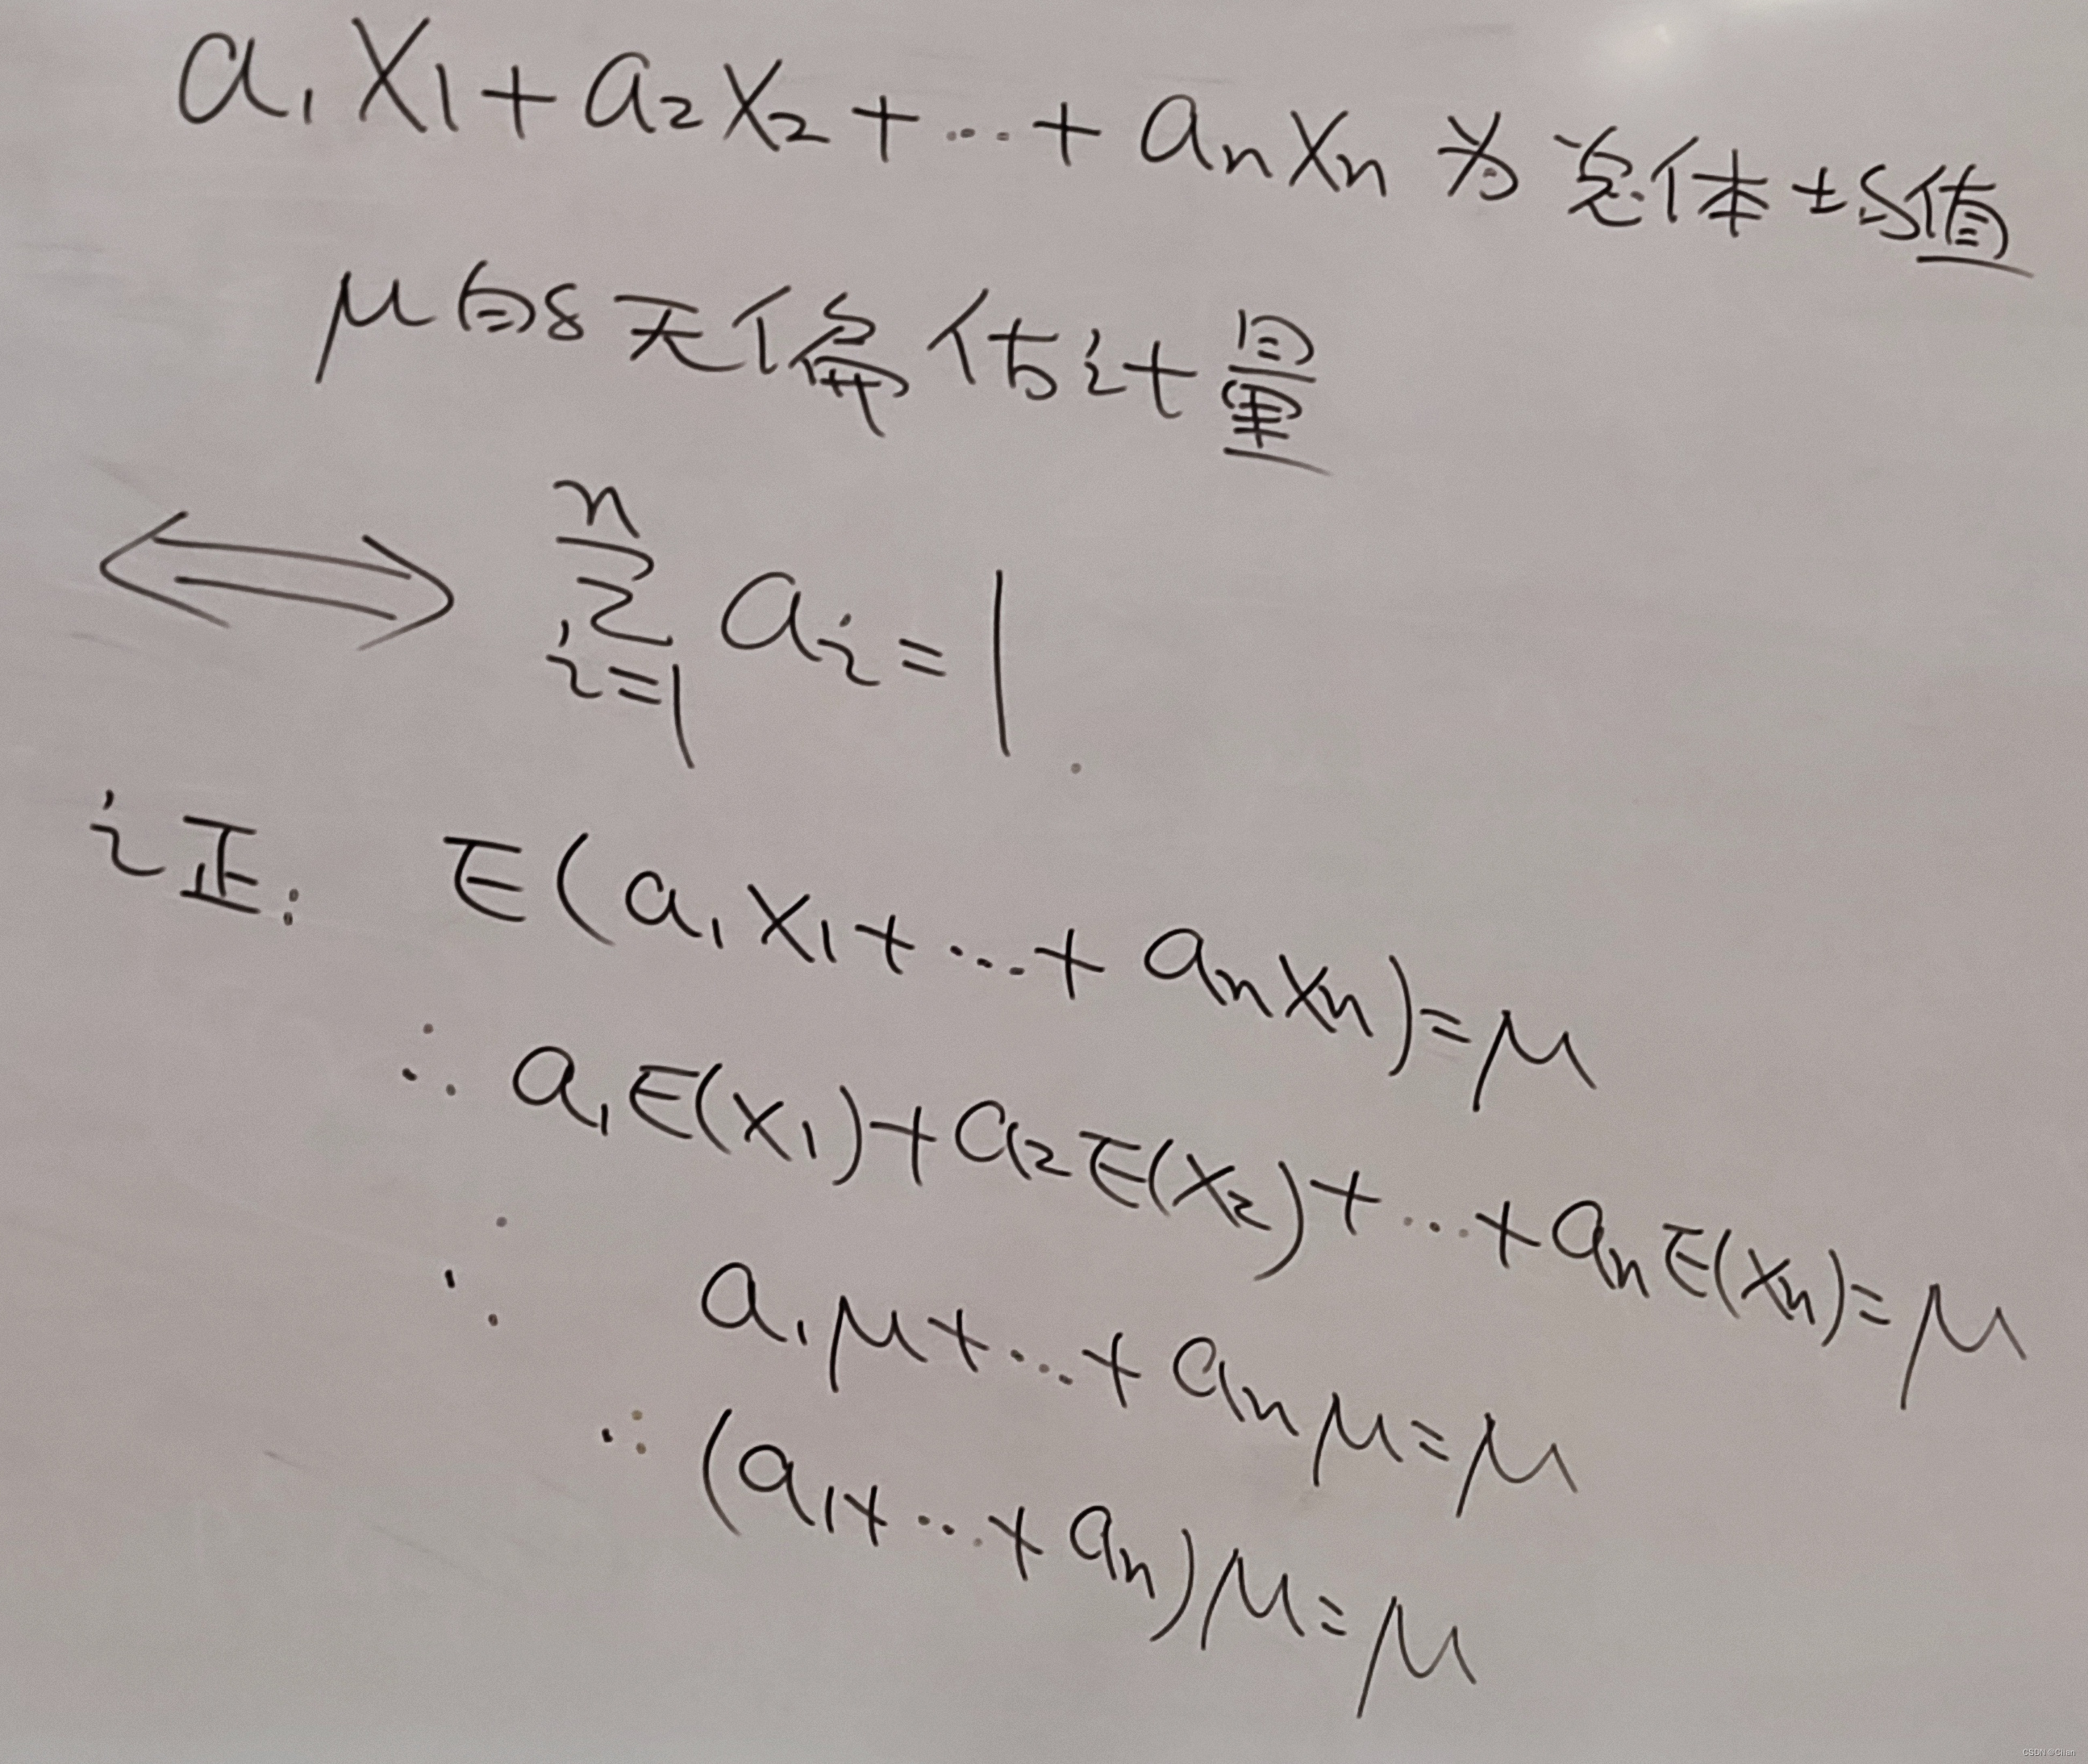 a₁X₁+a₂X₂+…+aₙXₙ为总体均值
μ的无偏估计量
⟺ ∑ᵢ₌₁ⁿ aᵢ=1.
证: E(a₁X₁+…+aₙXₙ)=μ
∴ a₁E(X₁)+a₂E(X₂)+…+aₙE(Xₙ)=μ
∴ a₁μ+…+aₙμ=μ
∴ (a₁+…+aₙ)μ=μ